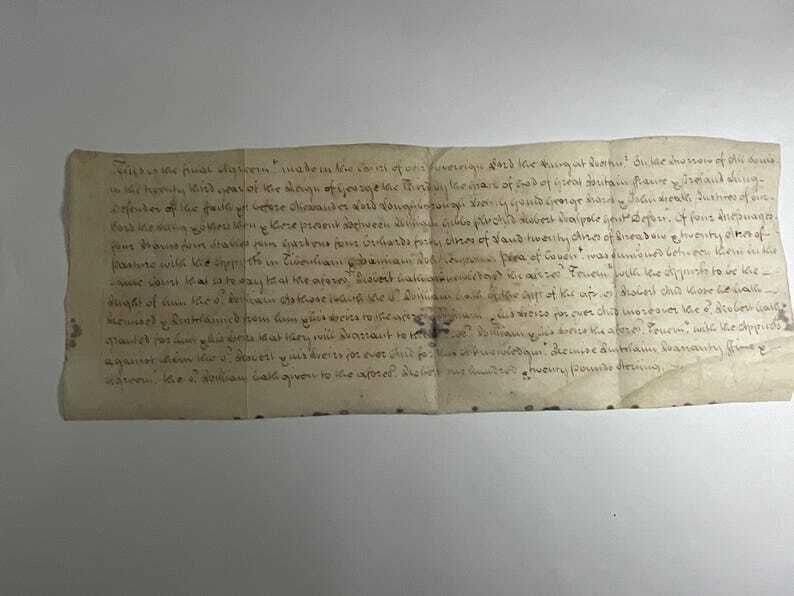 This is the final Agreemt. made in the Court of our Sovereign Lord the King at Westmr. On the Morrow of All Souls
in the twenty third year of the Reign of George the Third by the grace of God of Great Britain France & Ireland King
Defender of the Faith &c. before Alexander Lord Loughborough Henry Gould George Nares & John Heath Justices of our
Lord the King & others then & there present Between William Gibbs plt. And Robert Walpole Gent. Deforc. Of four Messuages
four Barns four Stables four Gardens four Orchards forty Acres of Land twenty Acres of Meadow & twenty Acres of
Pasture with the Appurts. in & Plea of Coven. was summoned between them in the
same Court that is to say that the afores. Robert hath acknowledged the afores. Tenem. with the Appurts. to be the
Right of him the sd. William As those which the sd. William hath of the Gift of the afores. Robert And those he hath
Remised & Quitclaimed from him & his Heirs to the afores. William & his Heirs for ever And moreover the sd. Robert hath
granted for him & his Heirs that they will Warrant to the afores. William & his Heirs the afores. Tenem. with the Appurts.
against him the sd. Robert & his Heirs for ever And for this Acknowledgmt. Remise Quitclaim Warranty Fine &
Agreemt. the sd. William hath given to the afores. Robert one hundred & twenty Pounds Sterling.